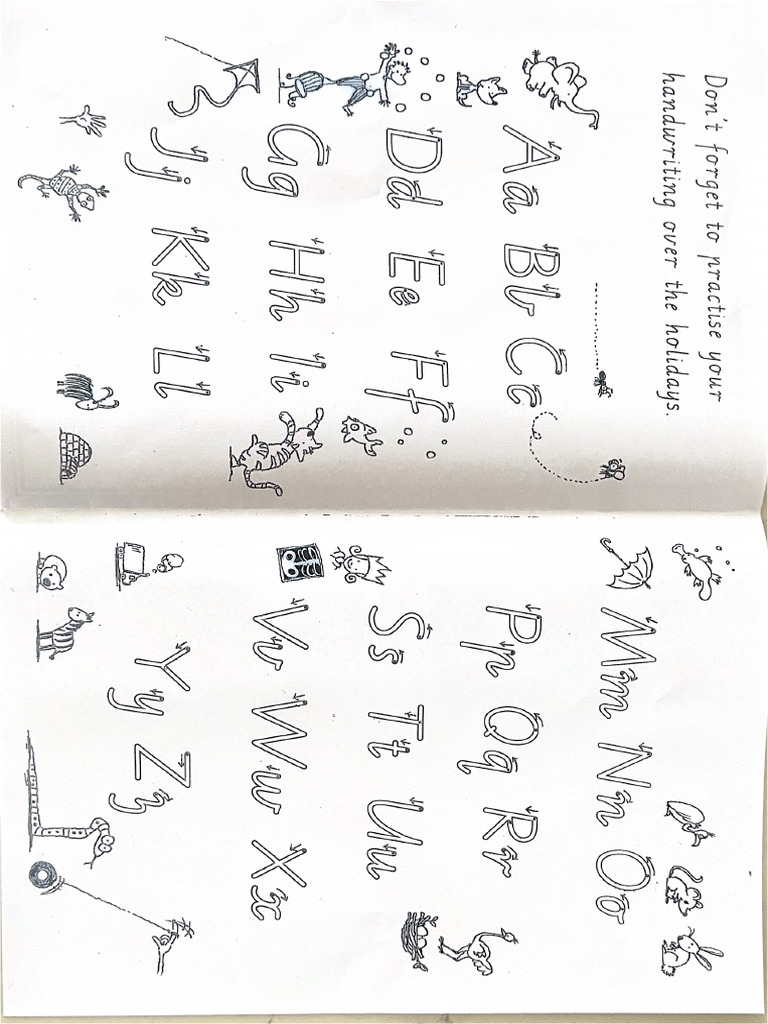 Don't forget to practise your
handwriting over the holidays.
Aa Bb Cc
Dd Ee Ff
Gg Hh Ii
Jj Kk Ll
Mm Nn Oo
Pp Qq Rr
Ss Tt Uu
Vv Ww Xx
Yy Zz